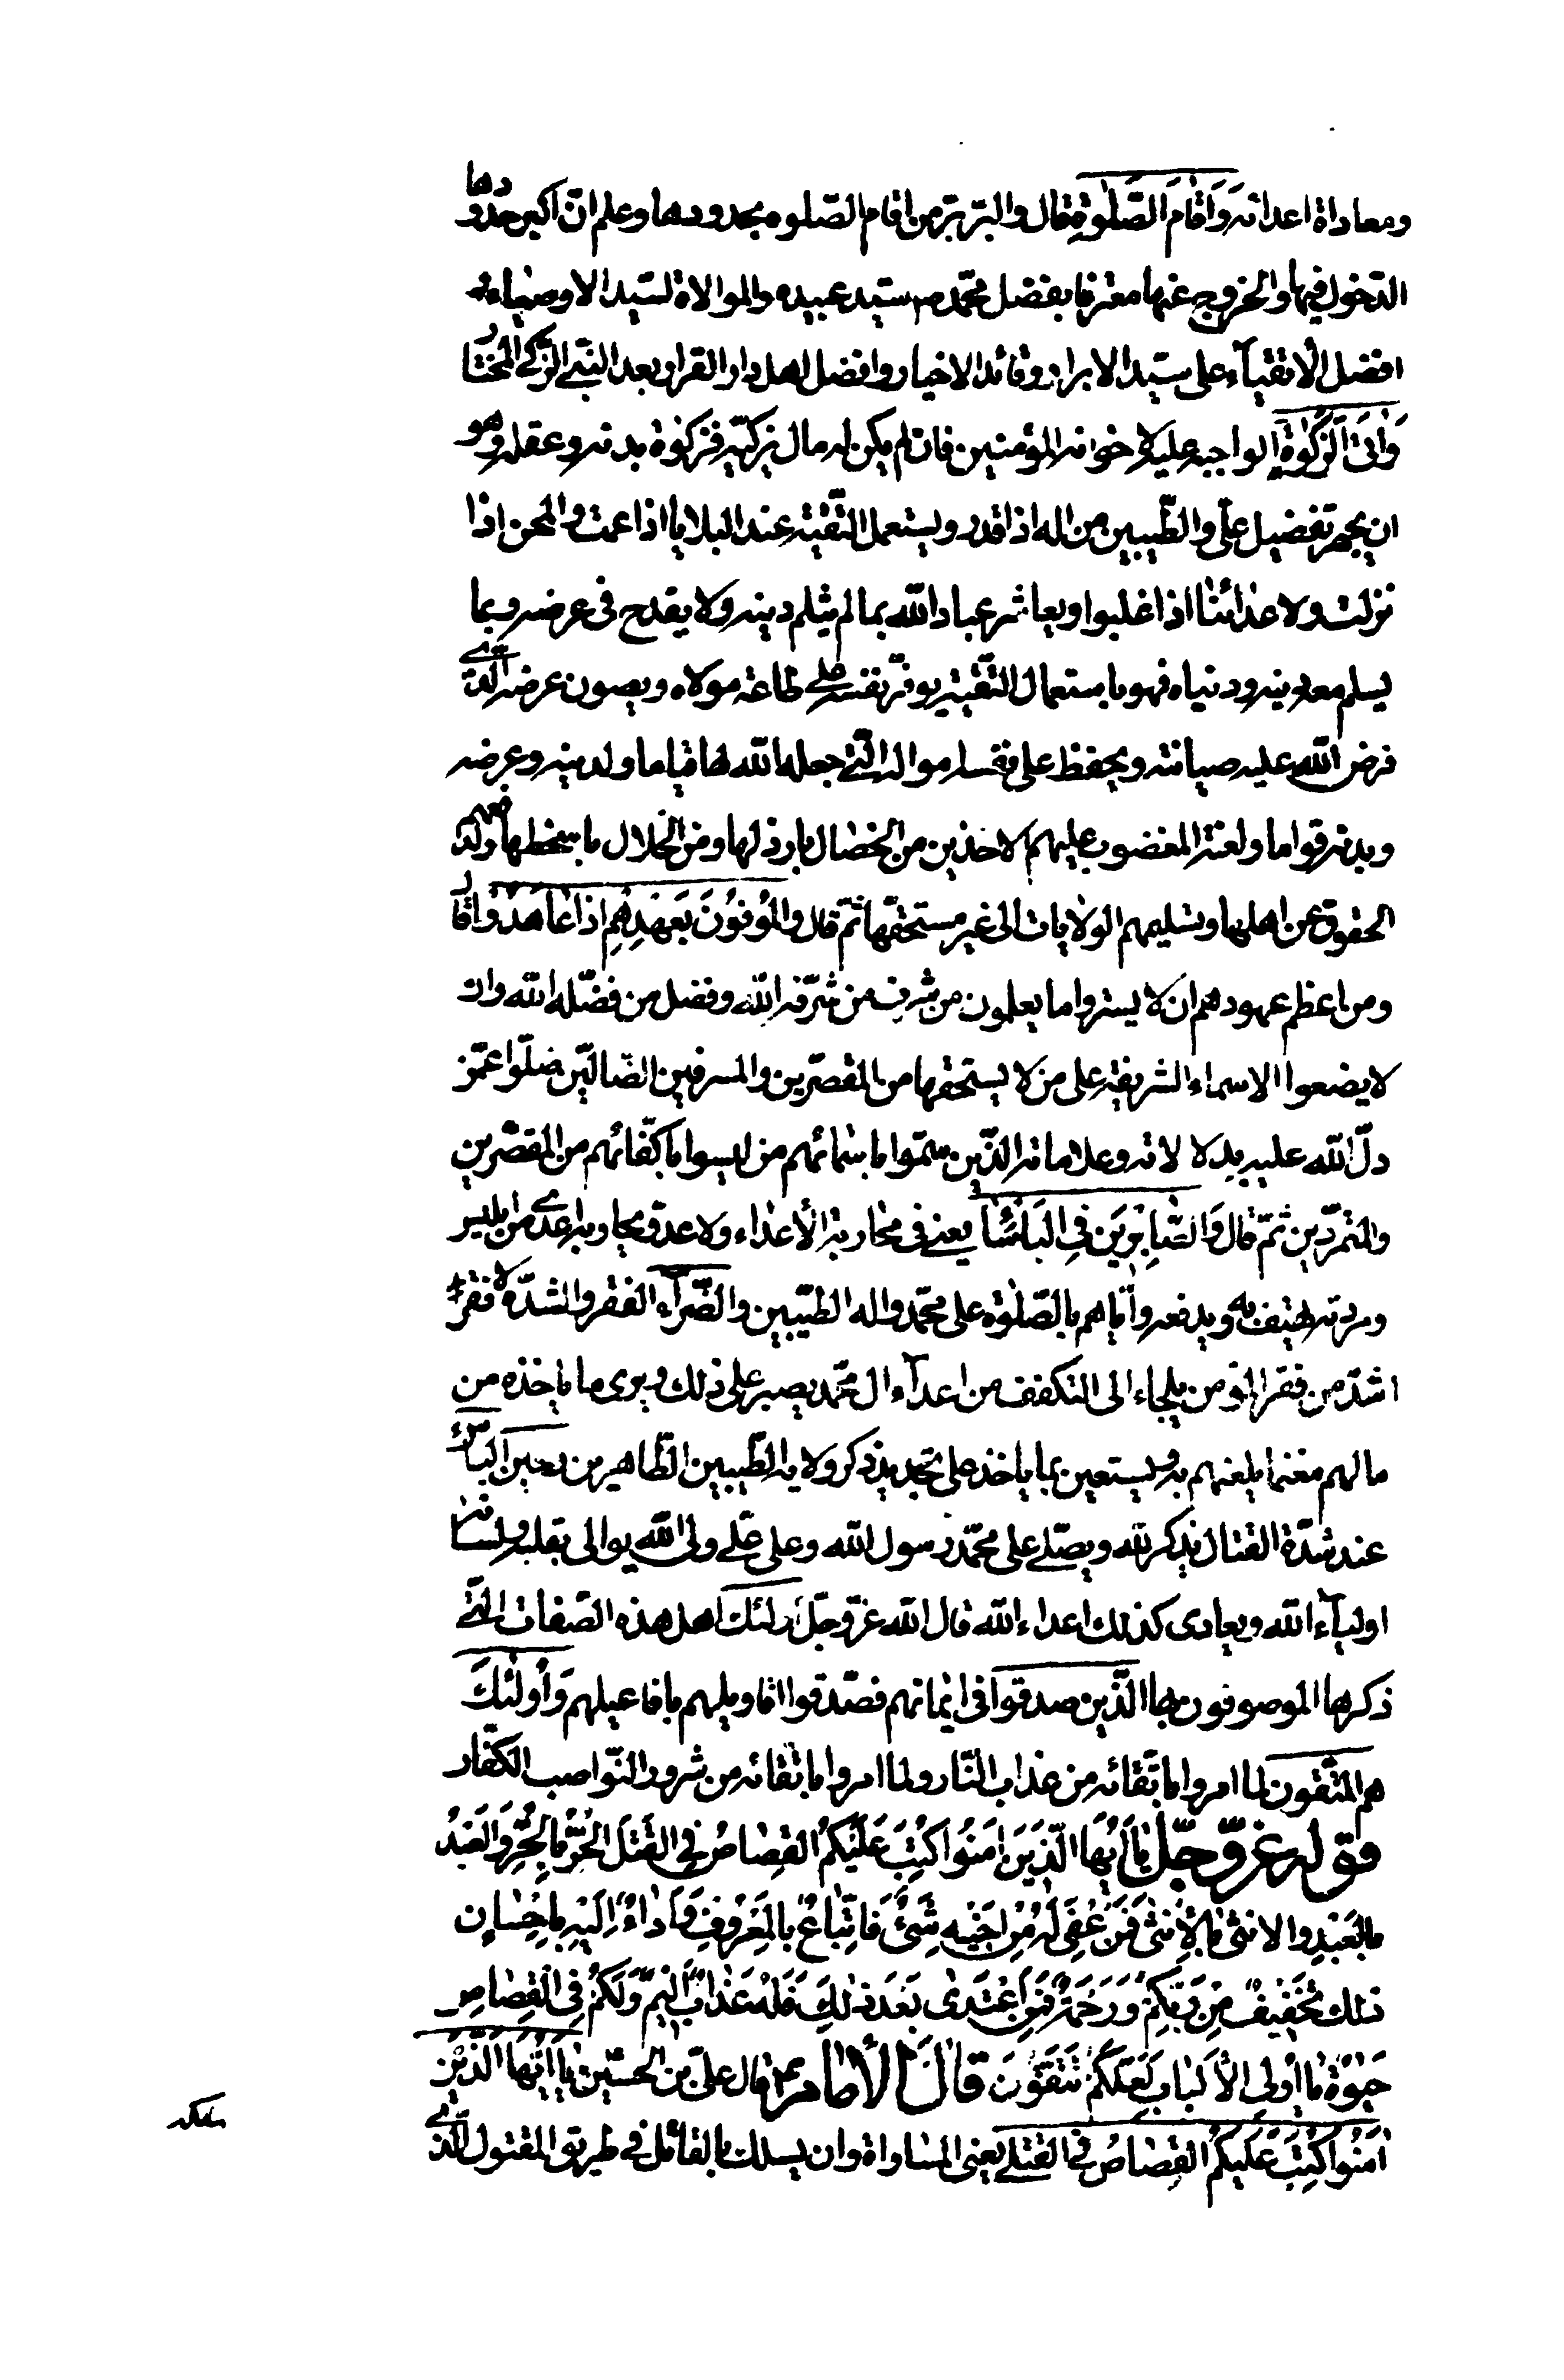 ومعاداة اعدائه وَاَقٰامَ الصَّلٰوةِ قال والبرّ برّ من اقام الصّلوه بحدودها وعلم انّ اكبر حدودها
الدّخول فيها والخروج عنها معترفا بفضل محمّد ص سيّد عبيده والموالاة لسيّد الاوصياء
افضل الأتقيآء على سيّد الابرار وقائد الاخيار وافضل اهل دار القرار بعد النبّى الزّكى المختار
وَاٰتَى الزَّكٰوةَ الواجبه عليه لاخوانه المؤمنين فان لم يكن له مال يزكّيه فزكوة بدنه وعقله وهو
ان يجهر تفضيل علّى والطّيبين من اله اذا قدر ويستعمل التّقيّة عند البلايا اذا عمت والمحن اذا
نزلت ولاعدائنا اذا غلبوا ويعاشر عباد الله بما لم يثلم دينه ولا يقدح فى عرضه وبما
يسلم معه دينه ودنياه فهو باستعمال التّقيّة يوفّر نفسه على طاعة مولاه ويصون عرضه الّذى
فرض الله عليه صيانته ويحفظ على نفسه امواله الّتى جعلها الله لها قياما ولدينه وعرضه
وبدنه قواما ولعنة المغضوب عليهم الاخذين من الخصال بارذلها ومن الخلال ما سخطها ولدفعهم
الحقوق عن اهلها وتسليمهم الولايات الى غير مستحقّها ثمّ قال وَالْمُوفُونَ بِعَهْدِهِمْ اِذٰا عٰاهَدُوا قال
ومن اعظم عهودهم ان لا يستروا ما يعلمون من شرف من شرّفه الله وفضل من فضّله الله وان
لا يضعوا الاسماء الشريفة على من لا يستحقها من المقصّرين والمسرفين الضّالّين ضلّوا عمّن
دلّ الله عليه بدلالاته وعلاماته الّذين سمّوا باسمائهم من ليسوا باكفّائهم من المقصّرين
والمتمرّدين ثمّ قال وَالصّٰابِرِينَ فِى الْبَأْسٰاءِ يعنى فى محاربة الأعداء ولا عدوّ يحاربه اعدى من ابليس
ومردته يهتف به ويدفعه واياهم بالصّلوة على محمّد واله الطيّبين والضّرّآء الفقر والشدّة ولا فقر
اشدّ من فقر المؤمن يلجاء الى التكفف من اعدآء ال محمّد يصبر على ذلك ويرى ما ياخذه من
مالهم مغنما يلعنهم به ويستعين بما ياخذ على تجديد ذكر ولاية الطّيبين الطّاهرين وحين البأس
عند شدّة القتال يذكر الله ويصلّى على محمّد رسول الله وعلى علّى ولى الله يوالى بقلبه ولسانه
اوليآء الله ويعادى كذلك اعداء الله قال الله عزّوجلّ اولئك اهل هذه الصّفات الّتى
ذكرها الموصوفون بها الّذين صدقوا فى ايمانهم فصّدقوا اقاويلهم بافاعيلهم وَاُولٰئِكَ
هم المتّقون لما امروا باتّقائه من عذاب النّار ولما امروا باتّقائه من شرور النّواصب الكفّار
قوله عزّوجّل يٰا اَيُّهَا الَّذِينَ اٰمَنُوا كُتِبَ عَلَيْكُمُ الْقِصٰاصُ فِى الْقَتْلَى الْحُرُّ بِالْحُرِّ وَالْعَبْدُ
بِالْعَبْدِ وَالْاُنْثىٰ بِالْاُنْثىٰ فَمَنْ عُفِىَ لَهُ مِنْ اَخِيهِ شَىْءٌ فَاتِّبٰاعٌ بِالْمَعْرُوفِ وَاَدٰاءٌ اِلَيْهِ بِاِحْسٰانٍ
ذٰلك تَخْفِيفٌ مِنْ رَبِّكُمْ وَرَحْمَةٌ فَمَنِ اعْتَدىٰ بَعْدَ ذٰلِكَ فَلَهُ عَذٰابٌ اَلِيمٌ وَلَكُمْ فِى الْقِصٰاصِ
حَيٰوةٌ يٰا اُولِى الْاَلْبٰابِ لَعَلَّكُمْ تَتَّقُونَ قٰالَ الْاِمٰامُ قال علىّ بن الحسين يٰا اَيُّهَا الَّذِينَ
اٰمَنُوا كُتِبَ عَلَيْكُمُ الْقِصٰاصُ فِى الْقَتْلى يعنى المساواة وان يسلك بالقاتل فى طريق المقتول الّذى